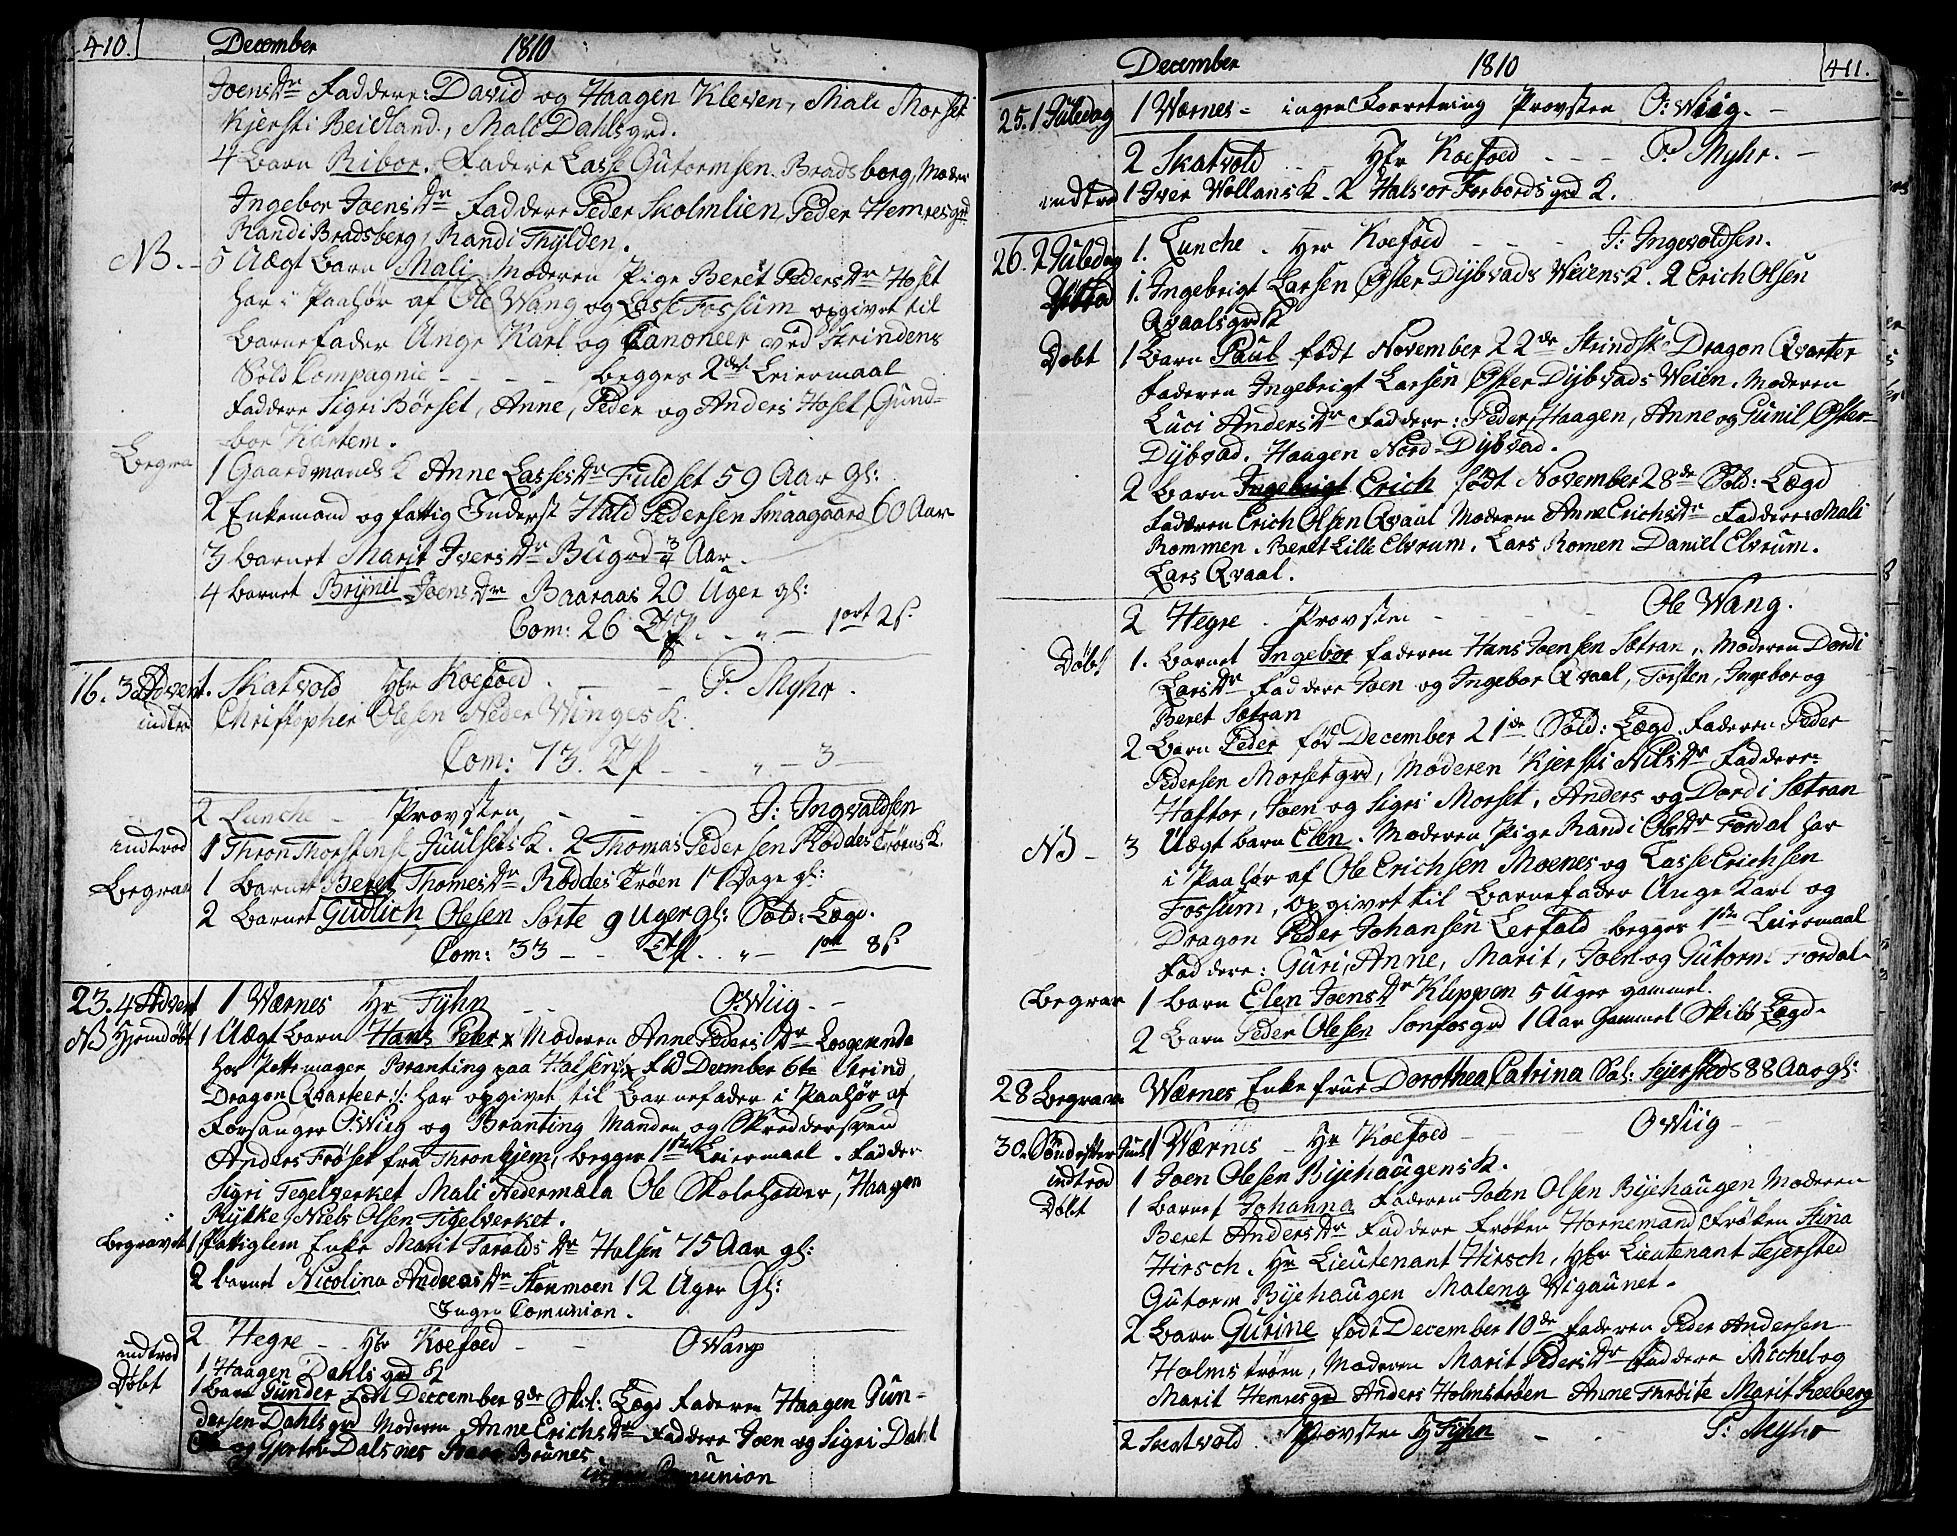 410. December 1810
Joens Dr Faddere: David og Haagen Kleven, Mali Morset
Kjersti Beidland, Mali Dahlsgrd.
4 Barn Ribor. Fadere Lasse Gutormsen Bradsborg, Moder
Ingebor Joens Dr Faddere Peder Skolmlien Peder Hemresgrd
Randi Bradsberg, Randi Thylden.
NB. - 5 Uægt Barn Mali Moderen Pige Beret Peders Dr Hoset
har i Paahør af Ole Wang og Lasse Fossum opgivet til
Barnefader Unge Karl og Canoneer ved Strindens
Sold Compagnie - - - - begges 2det Leiermaal
Faddere Sigri Børset, Anne, Peder og Anders Hoset, Gund-
bor Kartem.
Begra 1 Gaardmands K Anne Lasses Dr Fuldset 59 Aar gl:
2 Enkemand og fattig Inderst Hald Pedersen Smaagaard 60 Aar
3 Barnet Marit Ivers Dr Bugrd 3/4 Aar
4 Barnet Brynil Joens Dr Baaraas 20 Uger gl:
Com: 26 - - " - 1 ort 2 s.
16. 3 Advent. Skatvold Hr Koefoed - - P. Myhr.
indtr Christopher Olesen Neder Winges K.
Com: 73. - - " - 3 -
2 Lunche - Provsten - - - J: Ingvaldsen
indtrod 1 Thron Thorstens Juulsets K. 2 Thomas Pedersen Røddes Trøens K.
Begrav 1 Barnet Beret Thomes Dr Røddes Trøen 17 Dage gl:
2 Barnet Gudlich Olesen Sorte 9 Uger gl: Sold: Lægd.
Com: 33 - - " - 1 ort 8 s.
23. 4 Advent 1 Wærnes Hr Fyhn - - O: Wiig - -
NB Hjemdøbt 1 Uægt Barn Hans Peter x Moderen Anne Peders Dr Losgemente
hos Pottemager Branting paa Halsen x fød December 6te Strind
Dragon Qvarteer :/: har opgivet til Barnefader i Paahør af
Forsanger O: Wiig og Branting Manden og Skreddersvend
Anders Frøset fra Thronhjem, begges 1ste Leiermaal. Fadder
Sigri Tegelverket Mali Nedermæla Ole Skoleholder, Haagen
Rykke, Niels Olsen Tigelverket.
Begravet 1 Fattiglem Enke Marit Taralds Dr Halsen 75 Aar gl:
2 Barnet Nicolina Andreas Dr Stormoen 12 Uger Gl:
Ingen Comunion.
2 Hegre - Hr Koefoed - - O Wang
indtrod 1 Haagen Dahlsgrd K
Døbt 1 Barn Gunder født December 8de Skil: Lægd Faderen Haagen Gun-
dersen Dahlsgrd Moderen Anne Erichs Dr Faddere Joen og Sigri Dahl
og Gjertru Dalsnes Brunes
ingen Comunion
December 1810 411.
25. 1 Juledag 1 Wærnes - ingen Forretning Provsten O: Wiig. -
2 Skatvold - - Hr Koefoed - - - P. Myhr. -
indtrod 1 Iver Wollans K. 2 Halvor Forbordsgrd K.
26. 2 Juledag 1. Lunche. Hr Koefoed - - - J: Ingevoldsen.
indtrod 1. Ingebrigt Larsen Øster Dybvads Weiens K. 2 Erich Olsen
Qvaalsgrd K
Døbt 1 Barn Paul født November 22de Strindsk Dragon Qvarter
Faderen Ingebrigt Larsen Øster Dybvads Weien. Moderen
Luci Anders Dr Faddere: Peder, Haagen, Anne og Gunil Øster-
Dybvad. Haagen Nord-Dybvad.
2 Barn Ingebrigt Erich født November 28de Sold: Lægd
Faderen Erich Olsen Qvaal Moderen Anne Erichs Dr Faddere Mali
Rommen. Beret Lille Elvrum. Lars Romen Daniel Elvrum.
Lars Qvaal.
2 Hegre. Provsten - - - Ole Wang.
Døbt 1. Barnet Ingebor Faderen Hans Joensen Sætran, Moderen Dordi
Lars Dr Faddere Joen og Ingebor Qvaal, Torsten, Ingebor og
Beret Sætran
2 Barn Peder fød December 21de Sold: Lægd. Faderen Peder
Pedersen Morsetgrd, Moderen Kjersti Nils Dr Faddere:
Haftor, Joen og Sigri Morset, Anders og Dordi Sætran
NB - 3 Uægt Barn Elen. Moderen Pige Randi Ols Dr Fordal har
i Paahør af Ole Erichsen Moenes og Lasse Erichsen
Fossum, opgivet til Barnefader Unge Karl og
Dragon Peder Johansen Lerfald begges 1ste Leiermaal
Faddere: Guri, Anne, Marit, Joen og Gutorm Fordal-
Begrav 1 Barn Elen Joens Dr Kluppen 5 Uger gammel.
2 Barn Peder Olesen Sonfosgrd 1 Aar Gammel Skibs Lægd.
28 Begrav Wærnes Enke frue Dorothea Catrina Sal: Sejersteds 88 Aar gl:
30. Sønd: efter Juul 1 Wærnes - Hr Koefoed - - - O Wiig -
indtrod 1 Joen Olesen Byehaugens K.
Døbt 1 Barnet Johanna Faderen Joen Olsen Byehaugen Moderen
Beret Anders Dr Faddere Frøken Hornemand Frøken Stina
Hirsch. Hr Lieutenant Hirsch, Hr Lieutenant Sejersted
Gutorm Byehaugen Malena Wigaunet.
2 Barn Gurine født December 10de Faderen Peder Andersen
Holmstrøen, Moderen Marit Peders Dr Faddere Michel og
Marit Hemresgrd Anders Holmstrøen Anne Throite Marit Reeberg
2 Skatvold. Provsten Hr Fyhn - - P: Myhr